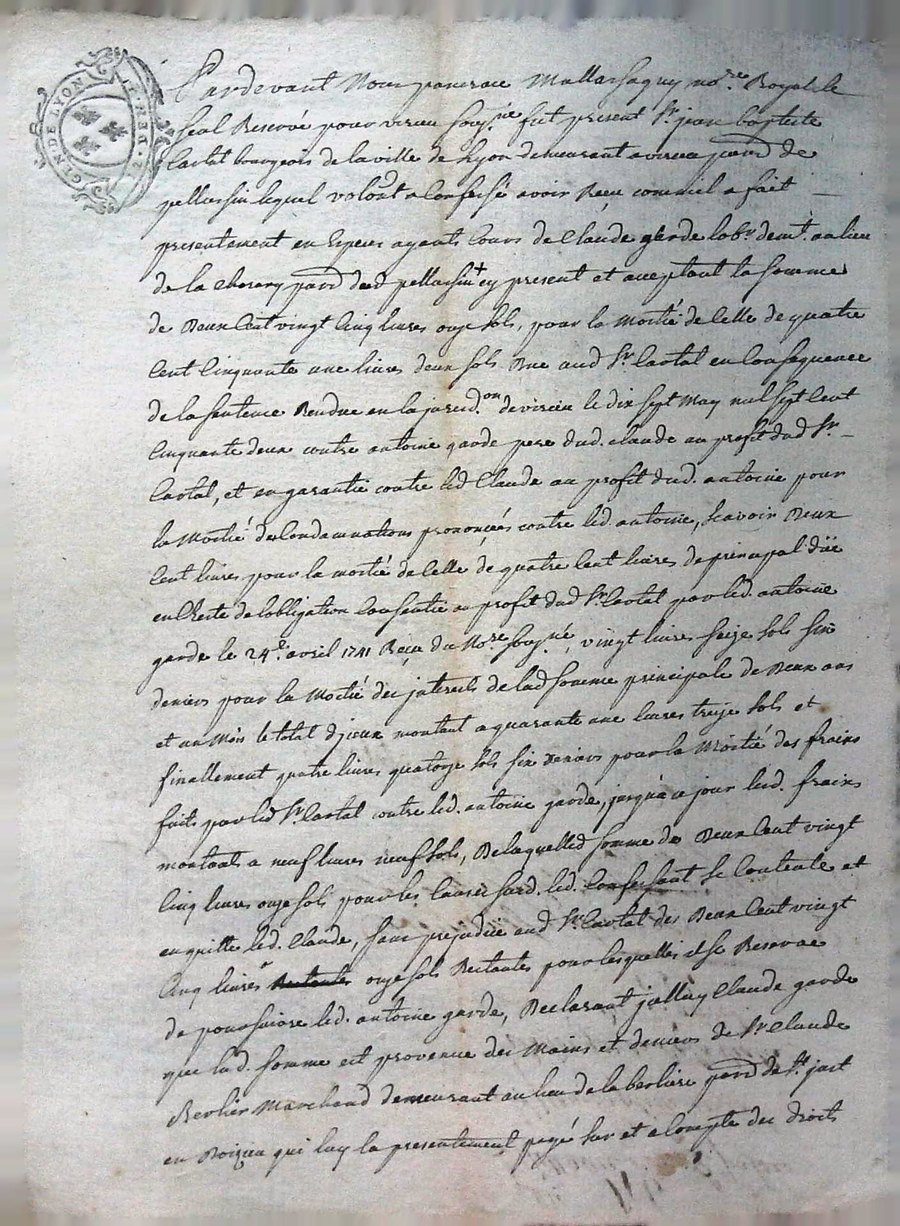 GEN. DE LYON
Pardevant Nous pancrace Mallassagny no.re Royal le
seal Reservé pour virieu soug.né fut present S.r jean baptiste
Cartal bourgeois de la ville de Lyon demeurant a virieu parr. de
pellussin lequel volont. a Confessé avoir Reçu comme il a fait
presentement en Especes ayants Cours de Claude garde lab.r dem.t au lieu
de la parr. dud. pellussin + cy present et acceptant la somme
de Deux Cent vingt Cinq livres onze sols, pour la Moitié de Celle de quatre
Cent Cinquante une livres deux sols Due aud S.r Cartal en Consequence
de la sentence Rendue en la jurid.on de virieu le dix sept May mil sept Cent
Cinquante deux contre antoine garde pere dud. Claude au profit dud S.r
Cartal, et en garantie contre led Claude au profit dud. antoine pour
la Moitié des Condamnations prononcées contre led. antoine, scavoir Deux
Cent livres pour la moitié de Celle de quatre Cent livres de principal düe
en Reste de lobligation Consentie au profit dud S.r Cartal par led. antoine
garde le 24.e avril 1741 Reçu du No.re soug.né, vingt livres seize sols six
deniers pour la Moitié des jnterets de lad somme principale de Deux ans
et un Mois le total djceux montant a quarante une livres treize sols et
finallement quatre livres quatorze sols six deniers pour la Moitié des fraix
faits par led S.r Cartal contre led. antoine garde, jusqu'a ce jour led. fraix
montants a neuf livres neuf sols, De laquelled somme de Deux Cent vingt
Cinq livres onze sols pour les Causes surd. led. Confessant se Contente et
en quitte led. Claude, sans prejudice aud S.r Cartal des Deux Cent vingt
Cinq livres onze sols Restantes pour lesquelles il se Reserve
de poursuivre led. antoine garde, Declarant jcelluy Claude garde
que lad. somme est provenue des Mains et deniers de S.r Claude
Berlier Marchand demeurant au lieu de la berliere parr. de S.t just
en Doizieu qui luy la presentement payé sur et a Compte des droits